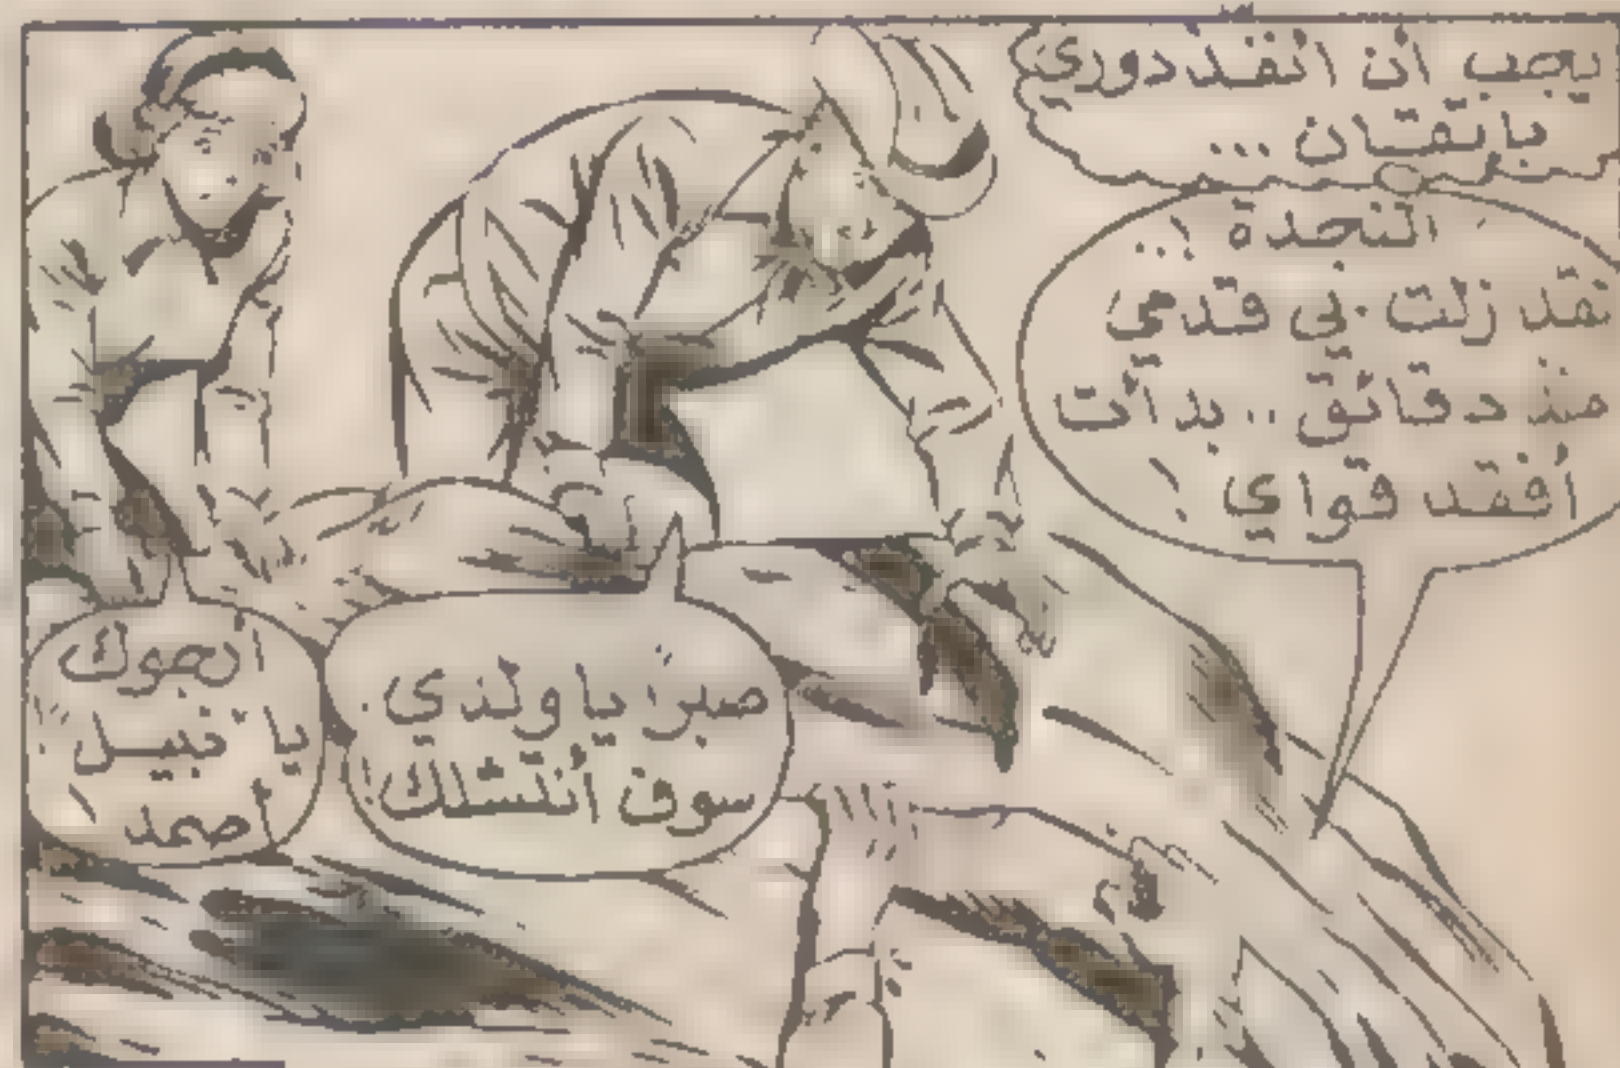 يجب أن أنفذ دوري
بإتقان ...
النجدة !..
لقد زلت بي قدمي
منذ دقائق .. بدأت
أفقد قواي !
صبرا يا ولدي .
سوف أنتشلك !
أرجوك
يا نبيل ..
أصمد !